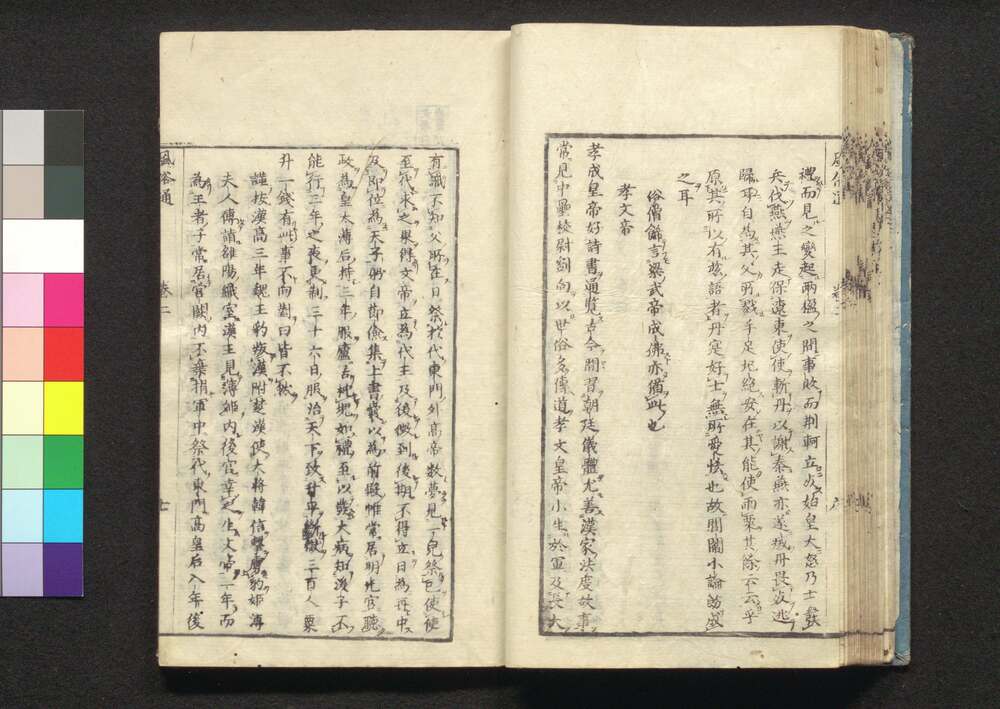 禮而見之變起兩楹之間事敗而荆軻立死始皇大怒乃士發
兵伐燕燕王走保遼東使使斬丹以謝秦燕亦遂滅丹畏死逃
歸耳自為其父所戮手足圮絕安在其能使雨粟其餘云云乎
原其所以有茲語者丹寔好士無所愛恡也故閭閻小論飭成
之耳
俗僧餘言梁武帝成佛亦猶此也
孝文帝
孝成皇帝好詩書通覧古今間習朝廷儀體尤善漢家法度故事
常見中壘校尉劉向以世俗多傳道孝文皇帝小生於軍及長大
有識不知父所在日祭於代東門外高帝數夢見一兒祭已使使
至代求之果得文帝立為代王及後徵到後期不得立日為再中
及即位為天子躬自節儉集上書囊以為前殿帷常居明光宮聽
政為皇太薄后持三年服廬舎枕塊如禮至以發大病知後子不
能行三年之喪更制三十六日服治天下致升平斷獄三百人粟
升一錢有此事不向對曰皆不然
謹按漢高三年魏王豹叛漢附楚漢使大將韓信擊虜豹姫薄
夫人傳詣雒陽織室漢王見薄姫内後宮幸之生文帝二年而
為王者子常居宮闕内不棄捐軍中祭代東門高皇后八年後
風俗通
卷二
七